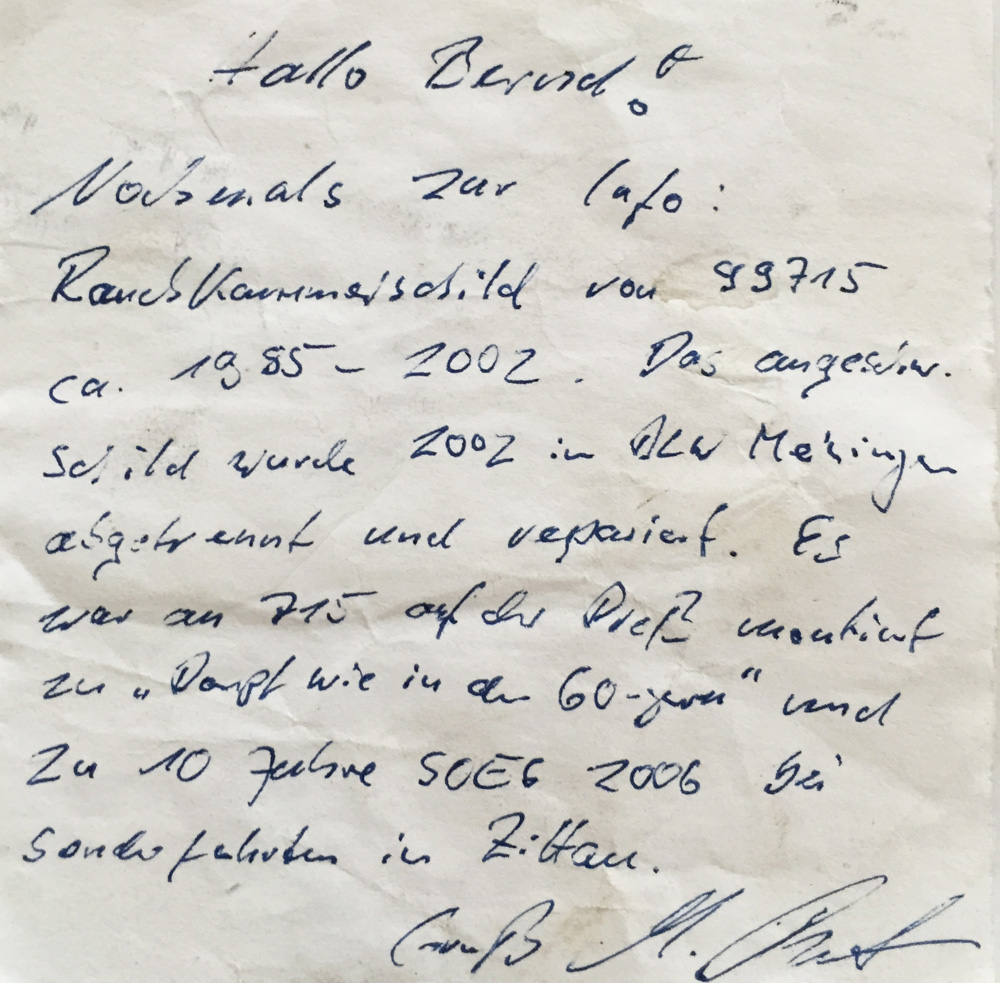 Hallo Bernd!
Nochmals zur Info:
Rauchkammerschild von 99715
ca. 1985 - 2002. Das angeschw.
Schild wurde 2002 in DLW Meiningen
abgetrennt und repariert. Es
war an 715 auf der Preß montiert
zu „Dampf wie in den 60-gern“ und
zu 10 Jahre SOEG 2006 bei
Sonderfahrten in Zittau.
Gruß M.